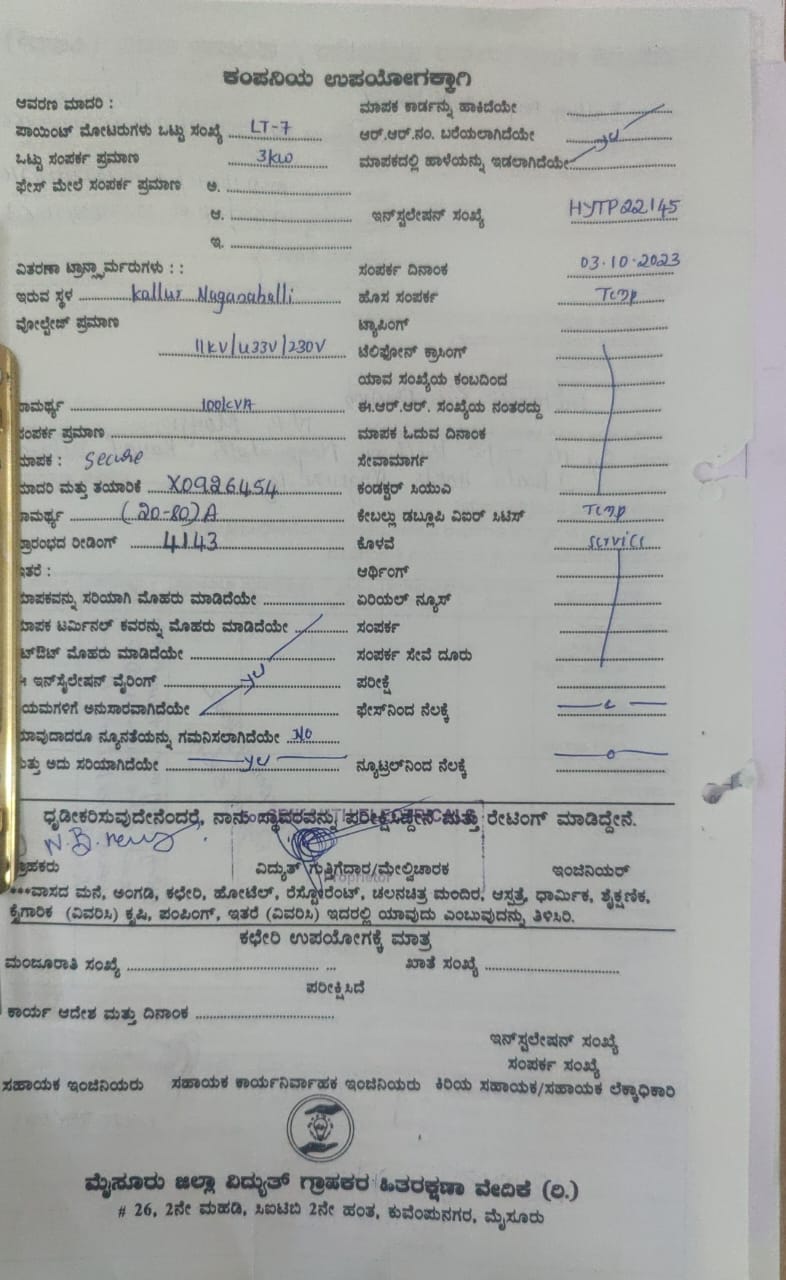 ಕಂಪನಿಯ ಉಪಯೋಗಕ್ಕಾಗಿ
ಆವರಣ ಮಾದರಿ :
ಮಾಪಕ ಕಾರ್ಡನ್ನು ಹಾಕಿದೆಯೇ
ಪಾಯಿಂಟ್ ಮೋಟರುಗಳು ಒಟ್ಟು ಸಂಖ್ಯೆ LT-7
ಆರ್.ಆರ್.ನಂ. ಬರೆಯಲಾಗಿದೆಯೇ
ಒಟ್ಟು ಸಂಪರ್ಕ ಪ್ರಮಾಣ 3kw
ಮಾಪಕದಲ್ಲಿ ಹಾಳೆಯನ್ನು ಇಡಲಾಗಿದೆಯೇ
ಫೇಸ್ ಮೇಲೆ ಸಂಪರ್ಕ ಪ್ರಮಾಣ ಅ.
ಆ.
ಇನ್‌ಸ್ಟಲೇಷನ್ ಸಂಖ್ಯೆ HYTP22145
ಇ.
ವಿತರಣಾ ಟ್ರಾನ್ಸ್ಫಾರ್ಮರುಗಳು : :
ಸಂಪರ್ಕ ದಿನಾಂಕ 03.10.2023
ಇರುವ ಸ್ಥಳ Kallur Naganahalli
ಹೊಸ ಸಂಪರ್ಕ Temp
ವೋಲ್ಟೇಜ್ ಪ್ರಮಾಣ
ಟ್ಯಾಪಿಂಗ್
11KV/433V/230V
ಟೆಲಿಫೋನ್ ಕ್ರಾಸಿಂಗ್
ಯಾವ ಸಂಖ್ಯೆಯ ಕಂಬದಿಂದ
ಸಾಮರ್ಥ್ಯ 100kVA
ಈ.ಆರ್.ಆರ್. ಸಂಖ್ಯೆಯ ನಂತರದ್ದು
ಸಂಪರ್ಕ ಪ್ರಮಾಣ
ಮಾಪಕ ಓದುವ ದಿನಾಂಕ
ಮಾಪಕ : Secure
ಸೇವಾಮಾರ್ಗ
ಮಾದರಿ ಮತ್ತು ತಯಾರಿಕೆ X0926454
ಕಂಡಕ್ಟರ್ ಸಿಯುವಿ
ಸಾಮರ್ಥ್ಯ (20-80)A
ಕೇಬಲ್ಲು ಡಬ್ಲೂಪಿ ವಿಐರ್ ಸಿಟಿಸ್ Temp
ಪ್ರಾರಂಭದ ರೀಡಿಂಗ್ 4143
ಕೊಳವೆ service
ಇತರೆ :
ಆರ್ಥಿಂಗ್
ಮಾಪಕವನ್ನು ಸರಿಯಾಗಿ ಮೊಹರು ಮಾಡಿದೆಯೇ
ಏರಿಯಲ್ ನ್ಯೂಸ್
ಮಾಪಕ ಟರ್ಮಿನಲ್ ಕವರನ್ನು ಮೊಹರು ಮಾಡಿದೆಯೇ
ಸಂಪರ್ಕ
ಕಟ್‌ಔಟ್ ಮೊಹರು ಮಾಡಿದೆಯೇ
ಸಂಪರ್ಕ ಸೇವೆ ದೂರು
ಇನ್‌ಸ್ಟಲೇಷನ್ ವೈರಿಂಗ್
ಪರೀಕ್ಷೆ
ನಿಯಮಗಳಿಗೆ ಅನುಸಾರವಾಗಿದೆಯೇ
ಫೇಸ್‌ನಿಂದ ನೆಲಕ್ಕೆ
ಯಾವುದಾದರೂ ನ್ಯೂನತೆಯನ್ನು ಗಮನಿಸಲಾಗಿದೆಯೇ No
ಮತ್ತು ಅದು ಸರಿಯಾಗಿದೆಯೇ
ನ್ಯೂಟ್ರಲ್‌ನಿಂದ ನೆಲಕ್ಕೆ
ಧೃಡೀಕರಿಸುವುದೇನೆಂದರೆ, ನಾನು ಸ್ಥಾವರವನ್ನು ಪರೀಕ್ಷಿಸಿದ್ದೇನೆ ಮತ್ತು ರೇಟಿಂಗ್ ಮಾಡಿದ್ದೇನೆ.
ಗ್ರಾಹಕರು
ವಿದ್ಯುತ್ ಗುತ್ತಿಗೆದಾರ/ಮೇಲ್ವಿಚಾರಕ
ಇಂಜಿನಿಯರ್
Proprietor
***ವಾಸದ ಮನೆ, ಅಂಗಡಿ, ಕಛೇರಿ, ಹೋಟೆಲ್, ರೆಸ್ಟೋರೆಂಟ್, ಚಲನಚಿತ್ರ ಮಂದಿರ, ಆಸ್ಪತ್ರೆ, ಧಾರ್ಮಿಕ, ಶೈಕ್ಷಣಿಕ,
ಕೈಗಾರಿಕ (ವಿವರಿಸಿ) ಕೃಷಿ, ಪಂಪಿಂಗ್, ಇತರೆ (ವಿವರಿಸಿ) ಇದರಲ್ಲಿ ಯಾವುದು ಎಂಬುವುದನ್ನು ತಿಳಿಸಿರಿ.
ಕಛೇರಿ ಉಪಯೋಗಕ್ಕೆ ಮಾತ್ರ
ಮಂಜೂರಾತಿ ಸಂಖ್ಯೆ
ಖಾತೆ ಸಂಖ್ಯೆ
ಪರೀಕ್ಷಿಸಿದೆ
ಕಾರ್ಯ ಆದೇಶ ಮತ್ತು ದಿನಾಂಕ
ಇನ್‌ಸ್ಟಲೇಷನ್ ಸಂಖ್ಯೆ
ಸಂಪರ್ಕ ಸಂಖ್ಯೆ
ಸಹಾಯಕ ಇಂಜಿನಿಯರು ಸಹಾಯಕ ಕಾರ್ಯನಿರ್ವಾಹಕ ಇಂಜಿನಿಯರು ಕಿರಿಯ ಸಹಾಯಕ/ಸಹಾಯಕ ಲೆಕ್ಕಾಧಿಕಾರಿ
ಮೈಸೂರು ಜಿಲ್ಲಾ ವಿದ್ಯುತ್ ಗ್ರಾಹಕರ ಹಿತರಕ್ಷಣಾ ವೇದಿಕೆ (ರಿ.)
# 26, 2ನೇ ಮಹಡಿ, ಸಿಐಟಿಬಿ 2ನೇ ಹಂತ, ಕುವೆಂಪುನಗರ, ಮೈಸೂರು